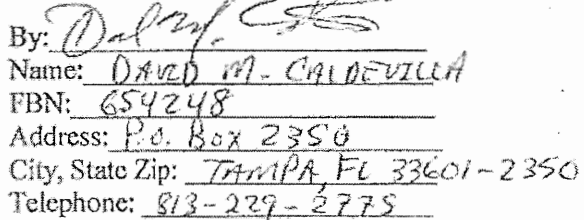 By:
Name: DAVID M. CALDEVILLA
FBN: 654248
Address: P.O. Box 2350
City, State Zip: TAMPA, FL 33601-2350
Telephone: 813-229-2775